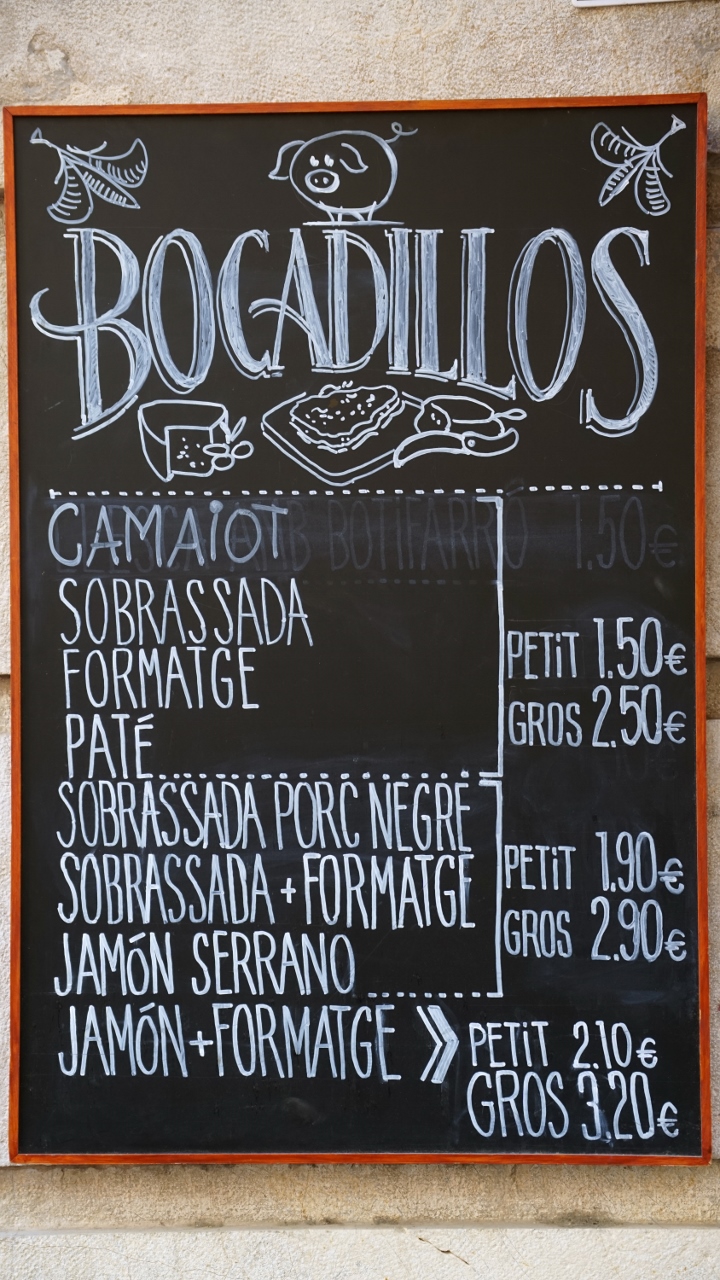 BOCADILLOS
CAMAIOT
SOBRASSADA
FORMATGE
PATÉ
PETIT 1.50€
GROS 2.50€
SOBRASSADA PORC NEGRE
SOBRASSADA + FORMATGE
JAMÓN SERRANO
PETIT 1.90€
GROS 2.90€
JAMÓN + FORMATGE » PETIT 2.10€
GROS 3.20€